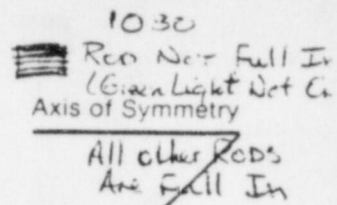 1030
Rod Not Full In
(Green Light Not On
Axis of Symmetry
All other RODS
Are Full In